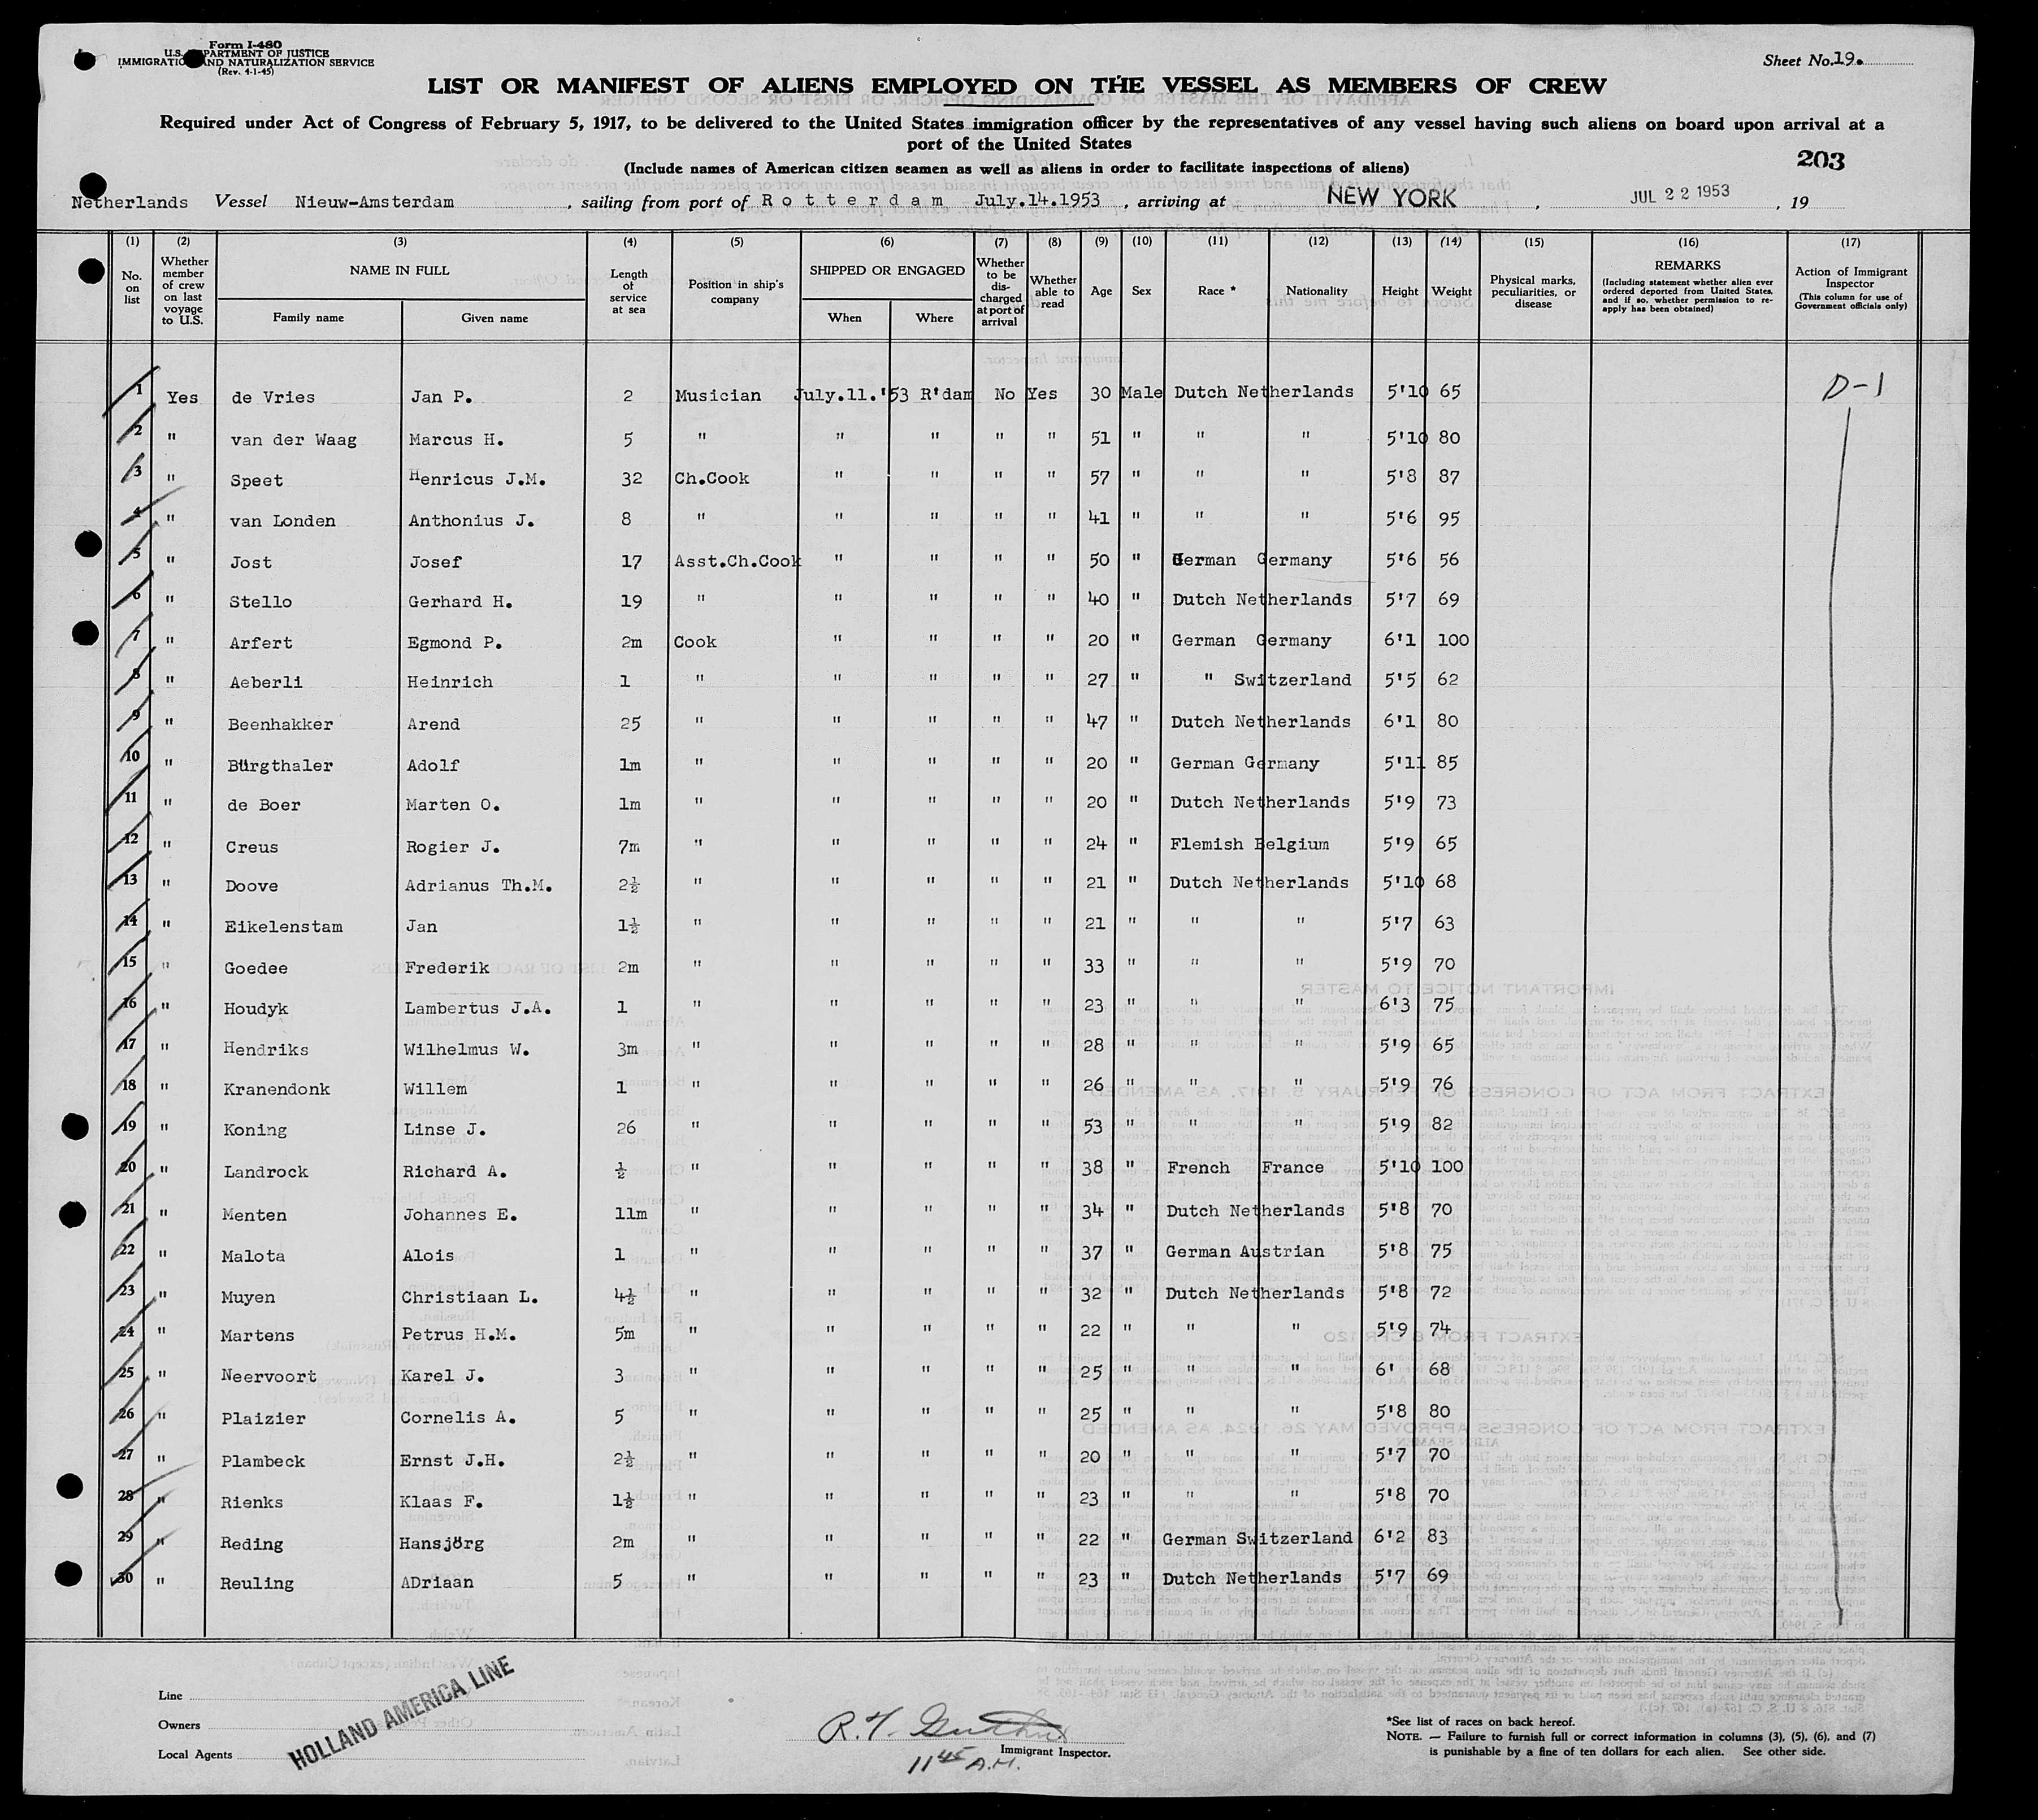 Form I-480
U.S. DEPARTMENT OF JUSTICE
IMMIGRATION AND NATURALIZATION SERVICE
(Rev. 4-1-45)
Sheet No. 19.
LIST OR MANIFEST OF ALIENS EMPLOYED ON THE VESSEL AS MEMBERS OF CREW
Required under Act of Congress of February 5, 1917, to be delivered to the United States immigration officer by the representatives of any vessel having such aliens on board upon arrival at a
port of the United States
(Include names of American citizen seamen as well as aliens in order to facilitate inspections of aliens)
203
Netherlands Vessel Nieuw-Amsterdam , sailing from port of Rotterdam July.14.1953 , arriving at NEW YORK , JUL 22 1953 , 19
(1) (2) (3) (4) (5) (6) (7) (8) (9) (10) (11) (12) (13) (14) (15) (16) (17)
No. on list Whether member of crew on last voyage to U.S. NAME IN FULL Family name Given name Length of service at sea Position in ship's company SHIPPED OR ENGAGED When Where Whether to be discharged at port of arrival Whether able to read Age Sex Race * Nationality Height Weight Physical marks, peculiarities, or disease REMARKS (Including statement whether alien ever ordered deported from United States, and if so, whether permission to re-apply has been obtained) Action of Immigrant Inspector (This column for use of Government officials only)
1 Yes de Vries Jan P. 2 Musician July.11.'53 R'dam No Yes 30 Male Dutch Netherlands 5'10 65 D-1
2 " van der Waag Marcus H. 5 " " " " " 51 " " " 5'10 80
3 " Speet Henricus J.M. 32 Ch.Cook " " " " 57 " " " 5'8 87
4 " van Londen Anthonius J. 8 " " " " " 41 " " " 5'6 95
5 " Jost Josef 17 Asst.Ch.Cook " " " " 50 " German Germany 5'6 56
6 " Stello Gerhard H. 19 " " " " " 40 " Dutch Netherlands 5'7 69
7 " Arfert Egmond P. 2m Cook " " " " 20 " German Germany 6'1 100
8 " Aeberli Heinrich 1 " " " " " 27 " " Switzerland 5'5 62
9 " Beenhakker Arend 25 " " " " " 47 " Dutch Netherlands 6'1 80
10 " Bürgthaler Adolf 1m " " " " " 20 " German Germany 5'11 85
11 " de Boer Marten O. 1m " " " " " 20 " Dutch Netherlands 5'9 73
12 " Creus Rogier J. 7m " " " " " 24 " Flemish Belgium 5'9 65
13 " Doove Adrianus Th.M. 2½ " " " " " 21 " Dutch Netherlands 5'10 68
14 " Eikelenstam Jan 1½ " " " " " 21 " " " 5'7 63
15 " Goedee Frederik 2m " " " " " 33 " " " 5'9 70
16 " Houdyk Lambertus J.A. 1 " " " " " 23 " " " 6'3 75
17 " Hendriks Wilhelmus W. 3m " " " " " 28 " " " 5'9 65
18 " Kranendonk Willem 1 " " " " " 26 " " " 5'9 76
19 " Koning Linse J. 26 " " " " " 53 " " " 5'9 82
20 " Landrock Richard A. ½ " " " " " 38 " French France 5'10 100
21 " Menten Johannes E. 11m " " " " " 34 " Dutch Netherlands 5'8 70
22 " Malota Alois 1 " " " " " 37 " German Austrian 5'8 75
23 " Muyen Christiaan L. 4½ " " " " " 32 " Dutch Netherlands 5'8 72
24 " Martens Petrus H.M. 5m " " " " " 22 " " " 5'9 74
25 " Neervoort Karel J. 3 " " " " " 25 " " " 6' 68
26 " Plaizier Cornelis A. 5 " " " " " 25 " " " 5'8 80
27 " Plambeck Ernst J.H. 2½ " " " " " 20 " " " 5'7 70
28 " Rienks Klaas F. 1½ " " " " " 23 " " " 5'8 70
29 " Reding Hansjörg 2m " " " " " 22 " German Switzerland 6'2 83
30 " Reuling ADriaan 5 " " " " " 23 " Dutch Netherlands 5'7 69
Line
Owners
Local Agents
HOLLAND AMERICA LINE
R.
Immigrant Inspector.
11 45 A.M.
*See list of races on back hereof.
NOTE. — Failure to furnish full or correct information in columns (3), (5), (6), and (7)
is punishable by a fine of ten dollars for each alien. See other side.